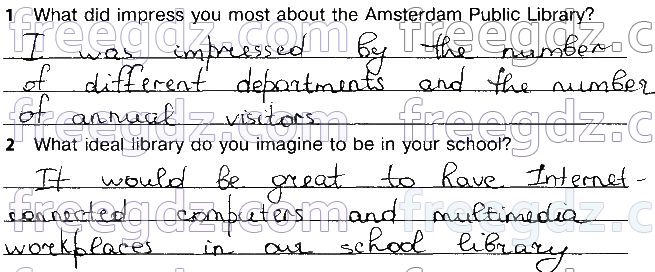 1 What did impress you most about the Amsterdam Public Library?
I was impressed by the number
of different departments and the number
of annual visitors
2 What ideal library do you imagine to be in your school?
It would be great to have Internet-
connected computers and multimedia
workplaces in our school library